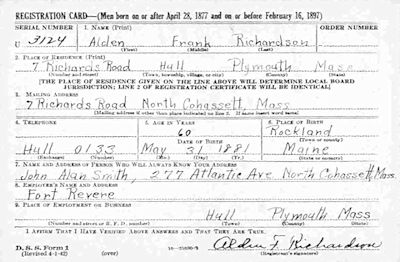 REGISTRATION CARD—(Men born on or after April 28, 1877 and on or before February 16, 1897)
SERIAL NUMBER 1. NAME (Print) ORDER NUMBER
U 3124 Alden Frank Richardson
(First) (Middle) (Last)
2. PLACE OF RESIDENCE (Print)
7 Richards Road Hull Plymouth Mass
(Number and street) (Town, township, village, or city) (County) (State)
[THE PLACE OF RESIDENCE GIVEN ON THE LINE ABOVE WILL DETERMINE LOCAL BOARD
JURISDICTION; LINE 2 OF REGISTRATION CERTIFICATE WILL BE IDENTICAL]
3. MAILING ADDRESS
7 Richards Road North Cohassett, Mass
[Mailing address if other than place indicated on line 2. If same insert word same]
4. TELEPHONE 5. AGE IN YEARS 6. PLACE OF BIRTH
60 Rockland
DATE OF BIRTH (Town or county)
Hull 0133 May 31 1881 Maine
(Exchange) (Number) (Mo.) (Day) (Yr.) (State or country)
7. NAME AND ADDRESS OF PERSON WHO WILL ALWAYS KNOW YOUR ADDRESS
John Alan Smith, 277 Atlantic Ave North Cohassett, Mass.
8. EMPLOYER'S NAME AND ADDRESS
Fort Revere
9. PLACE OF EMPLOYMENT OR BUSINESS
Hull Plymouth Mass
(Number and street or R. F. D. number) (Town) (County) (State)
I AFFIRM THAT I HAVE VERIFIED ABOVE ANSWERS AND THAT THEY ARE TRUE.
D. S. S. Form 1
(Revised 4-1-42) (over) Alden F. Richardson
(Registrant's signature)